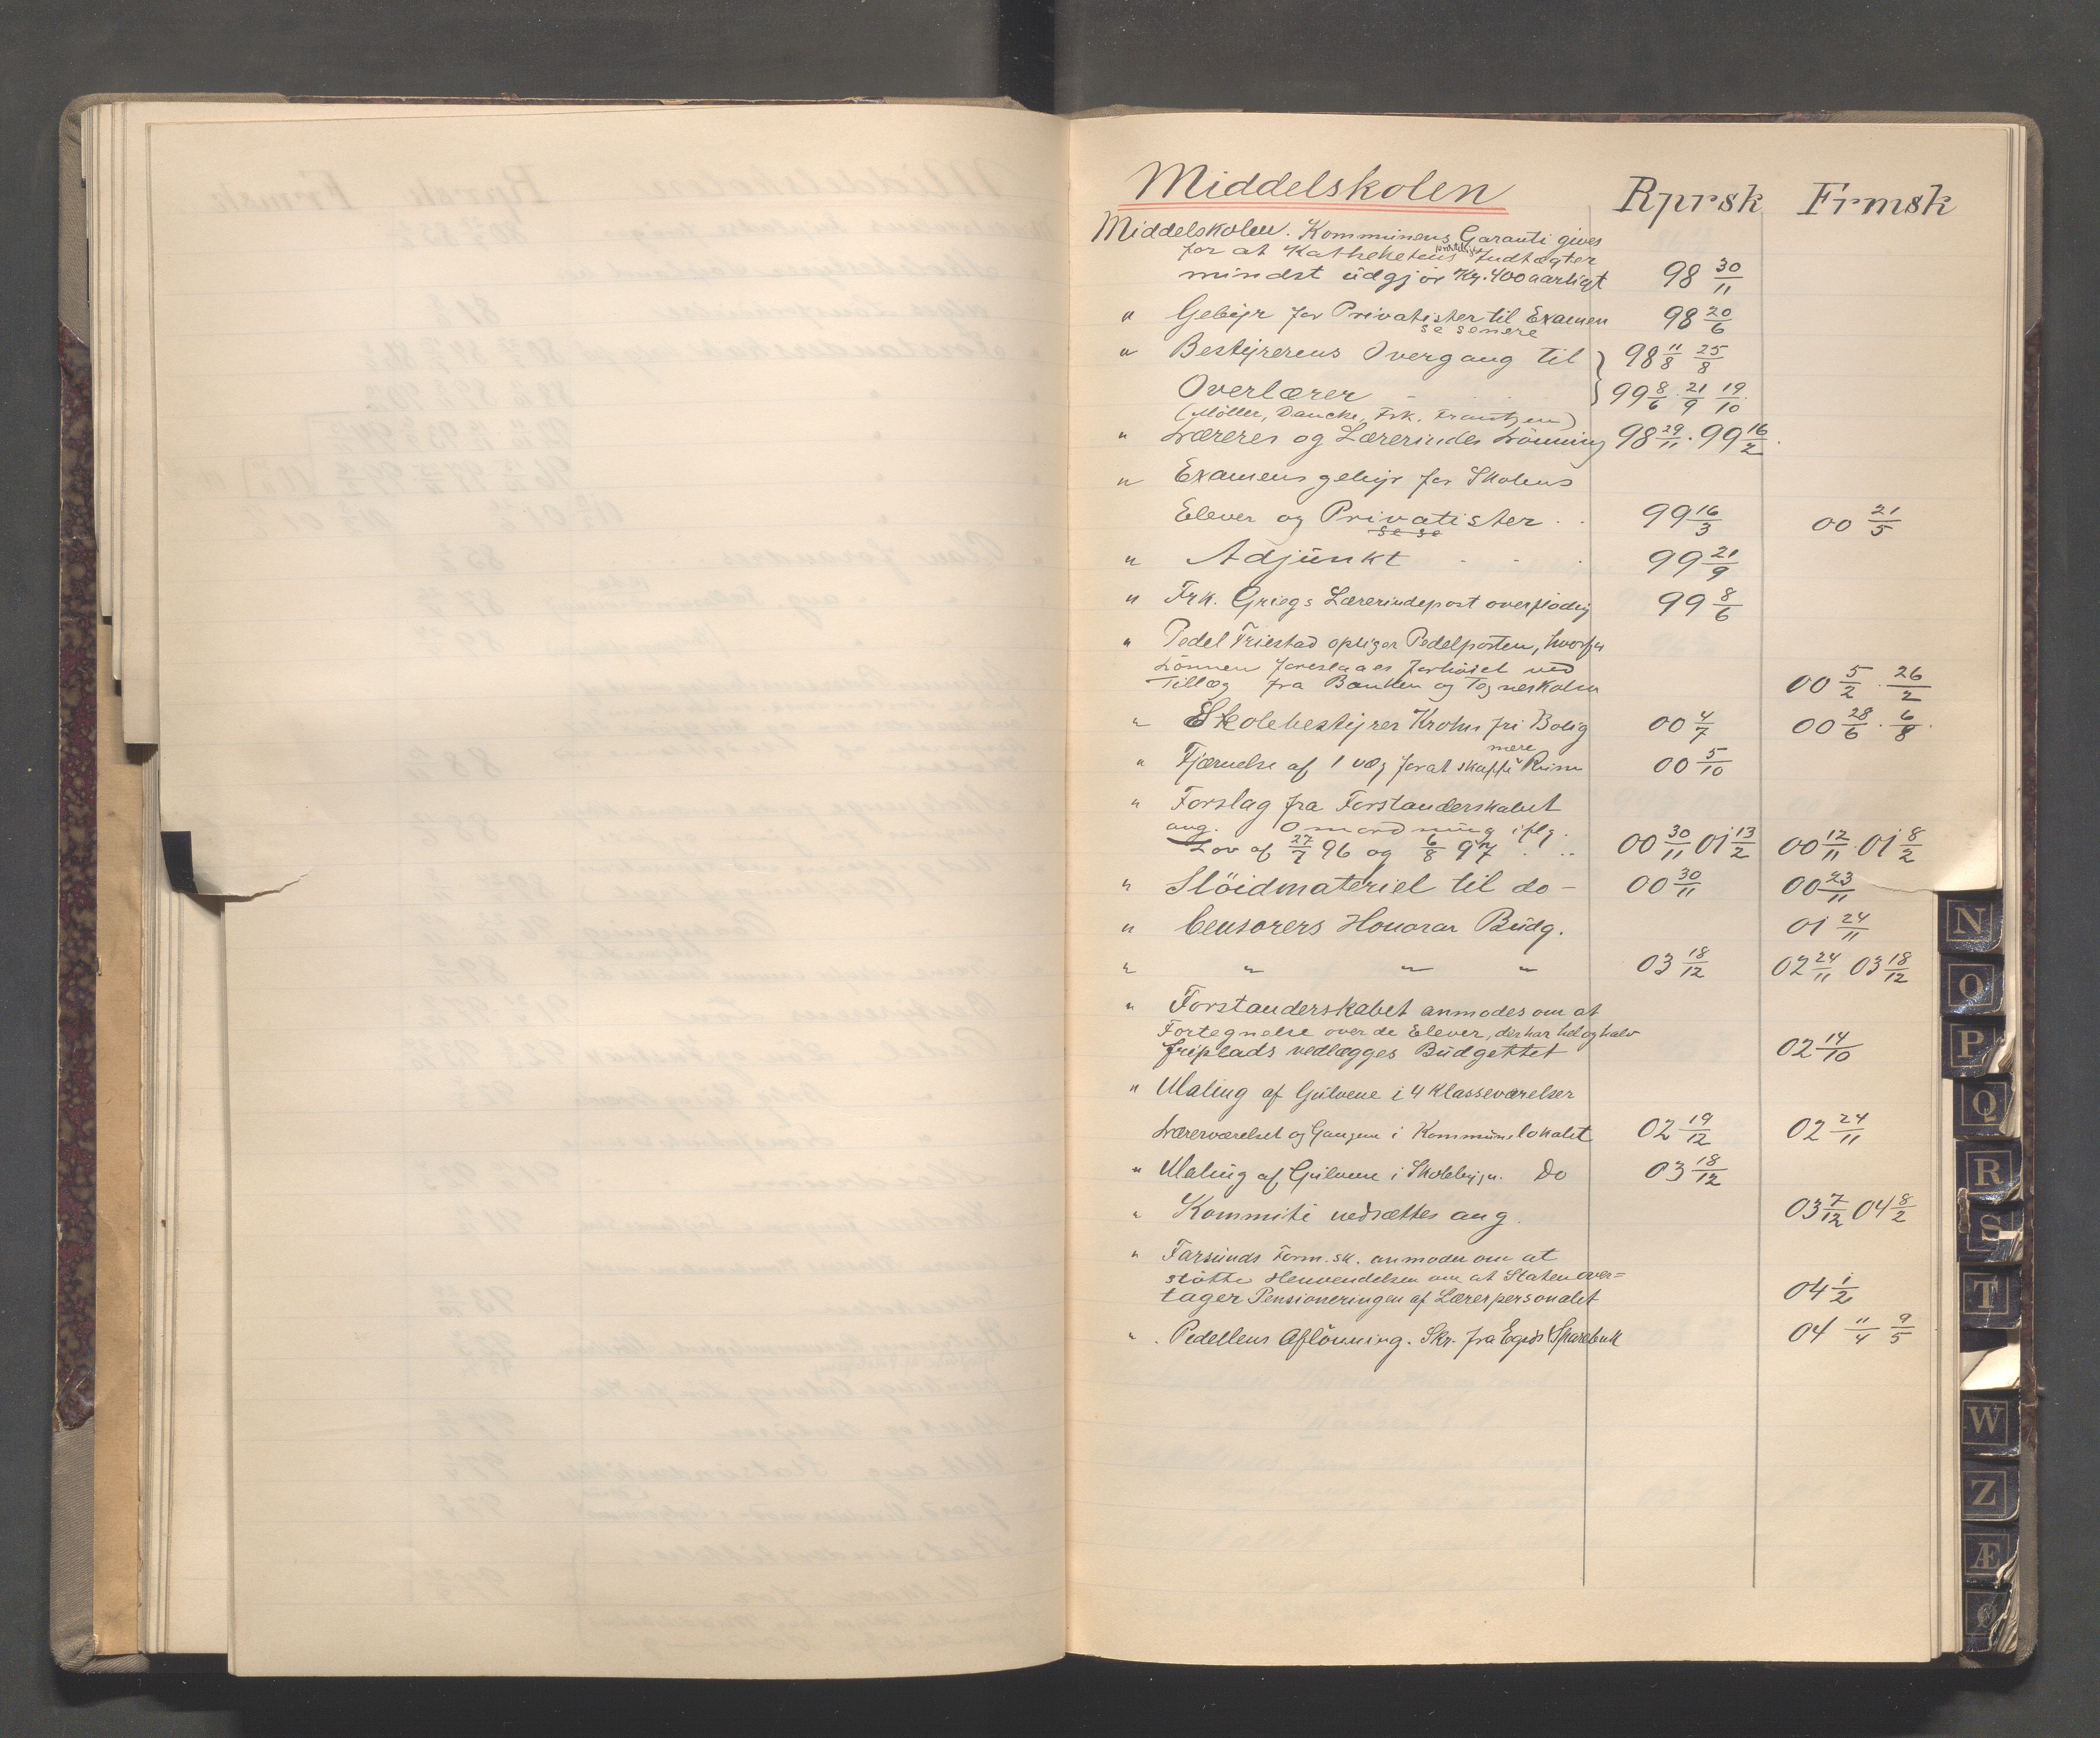 Middelskolen Rprsk Frmsk
Middelskolen. Kommunens Garanti gives
for at Kathehetens Indtægter
mindst üdgjør Kr. 400 aarligt 98 30/11
" Gebyr for Privatister til Examen 98 20/6
se senere
" Bestyrerens Overgang til } 98 11/8 25/8
Overlærer } 99 8/6 . 21/9 19/10
(Møller, Dancke, Frk. Frantzen)
" Læreres og Lærerindes Lønning 98 29/11 . 99 16/2
" Examensgebyr for Skolens
Elever og Privatister . . 99 16/3 00 21/5
se se
" Adjünkt 99 21/9
" Frk. Griegs Lærerindepost overflødig 99 8/6
" Pedel Friestad opsiger Pedelposten, hvorfor
Lønnen foreslaaes forhöiet ved
Tillæg fra Banken og Tegneskolen 00 5/2 . 26/2
" Skolebestyrer Krohns fri Bolig 00 4/7 00 28/6 . 6/8
mere
" Fjærnelse af 1 væg forat skaffe Rüm 00 5/10
" Forslag fra Forstanderskabet
ang. Omordning iflg.
Lov af 27/7 96 og 6/8 97 . .. 00 30/11 01 13/2 00 12/11 . 01 8/2
" Slöidmateriel til do - 00 30/11 00 23/11
" Censorers Honorar Büdg. 01 24/11
" " " " 03 18/12 02 24/11 03 18/12
" Forstanderskabet anmodes om at
Fortegnelse over de Elever, der har hel og halv
friplads vedlægges Büdgettet 02 14/10
" Maling af Gülvene i 4 Klasseværelser
Lærerværelset og Gangene i Kommünelokalet 02 19/12 02 24/11
" Maling af Gülvene i Skolebygn. Do 03 18/12
" Kommite nedsættes ang. 03 7/12 04 8/2
" Farsünds Form.sk. anmoder om at
støtte Henvendelsen om at Staten over=
tager Pensioneringen af Lærerpersonalet 04 1/2
" Pedellens Aflönning. Skr. fra Egrds Sparebnk 04 11/4 9/5
N
O
P
Q
R
S
T
W
Z
Æ
Ø